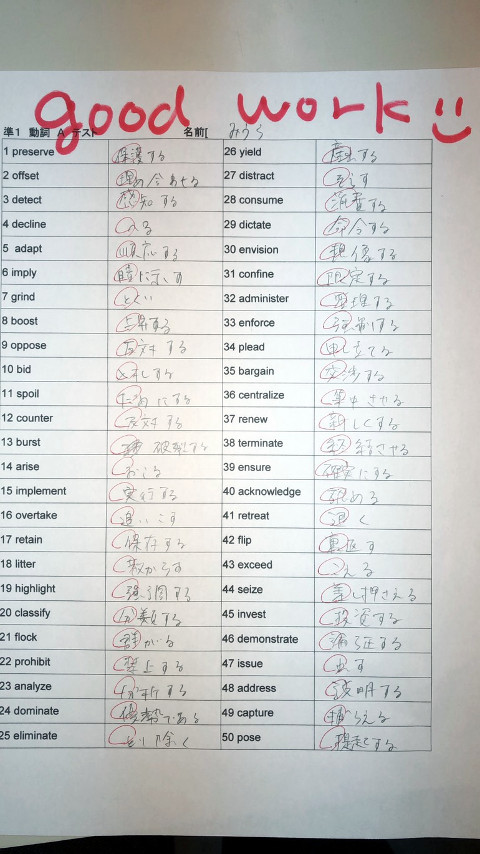 good work
準1 動詞 A テスト 名前[ みうら
1 preserve 保護する 26 yield 産出する
2 offset 埋め合わせる 27 distract そらす
3 detect 感知する 28 consume 消費する
4 decline へる 29 dictate 命令する
5 adapt 順応する 30 envision 想像する
6 imply 暗に示す 31 confine 限定する
7 grind とぐ 32 administer 管理する
8 boost 上昇する 33 enforce
9 oppose 反対する 34 plead 申し立てる
10 bid 入札する 35 bargain 交渉する
11 spoil だめにする 36 centralize 集中させる
12 counter 反対する 37 renew 新しくする
13 burst 破裂する 38 terminate 終結させる
14 arise おこる 39 ensure 確実にする
15 implement 実行する 40 acknowledge 認める
16 overtake 追いこす 41 retreat 退く
17 retain 保存する 42 flip 裏返す
18 litter 散らかす 43 exceed こえる
19 highlight 強調する 44 seize 差し押さえる
20 classify 分類する 45 invest 投資する
21 flock 群がる 46 demonstrate
22 prohibit 禁止する 47 issue 出す
23 analyze 分析する 48 address 説明する
24 dominate 優勢である 49 capture 捕らえる
25 eliminate とり除く 50 pose 提起する